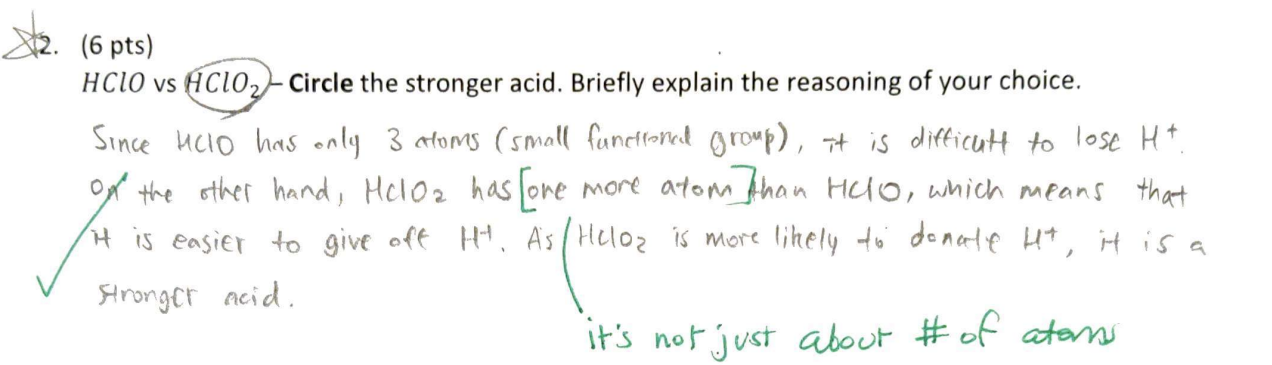 2. (6 pts)
HClO vs HClO₂ – Circle the stronger acid. Briefly explain the reasoning of your choice.
Since HClO has only 3 atoms (small functional group), it is difficutt to lose H⁺.
On the other hand, HClO₂ has [one more atom] than HClO, which means that
it is easier to give off H⁺. As HClO₂ is more likely to donate H⁺, it is a
stronger acid.
it's not just about # of atoms